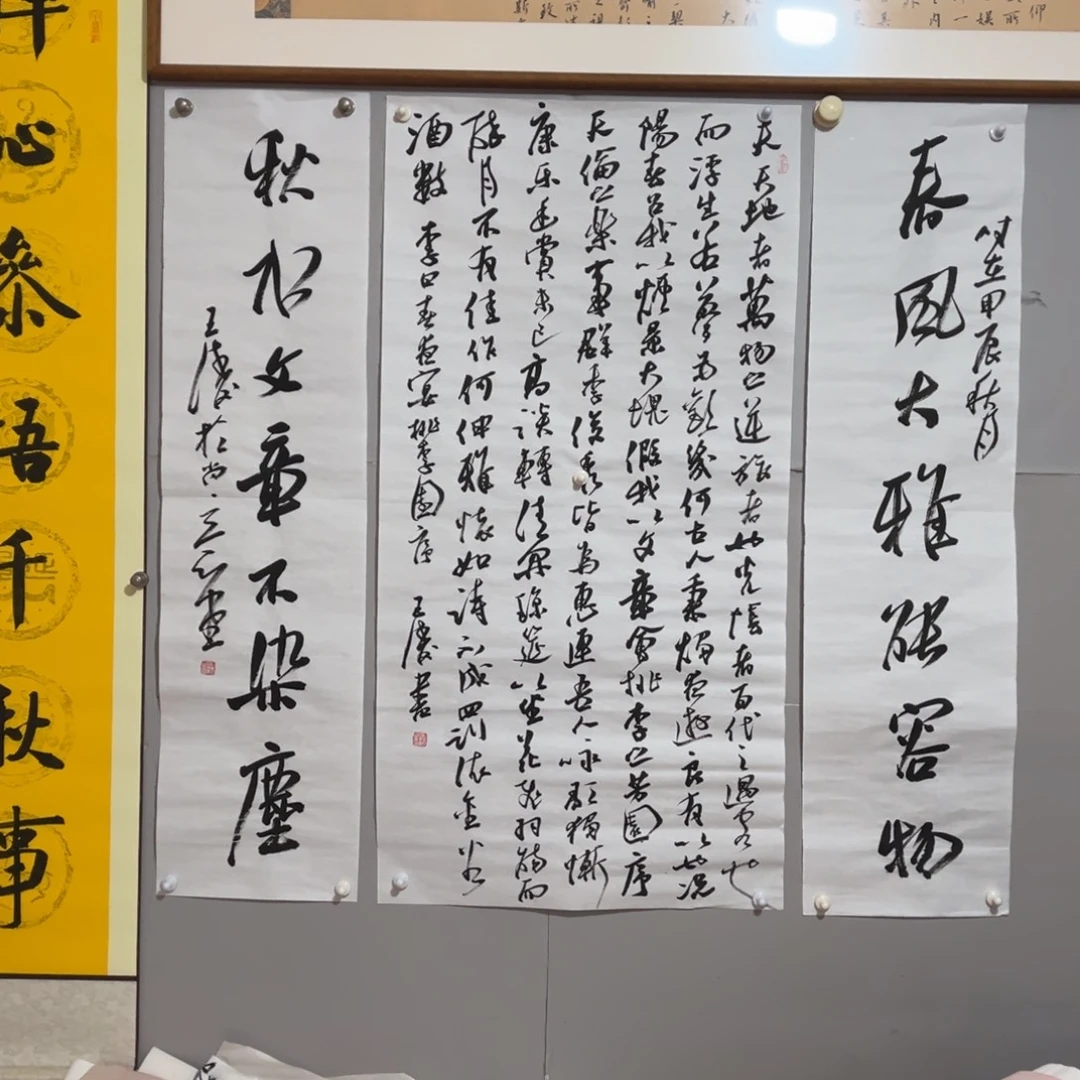 时在甲辰秋月
春風大雅能容物
夫天地者萬物之逆旅者也光陰者百代之過客也
而浮生若夢為歡幾何古人秉燭夜遊良有以也況
陽春召我以煙景大塊假我以文章會桃李之芳園序
天倫之樂事群季俊秀皆為惠連吾人詠歌獨慚
康樂幽賞未已高談轉清開瓊筵以坐花飛羽觴而
醉月不有佳作何伸雅懷如詩不成罰依金谷
酒數 李白春夜宴桃李園序 王書
秋水文章不染塵
王於
心參悟千秋事